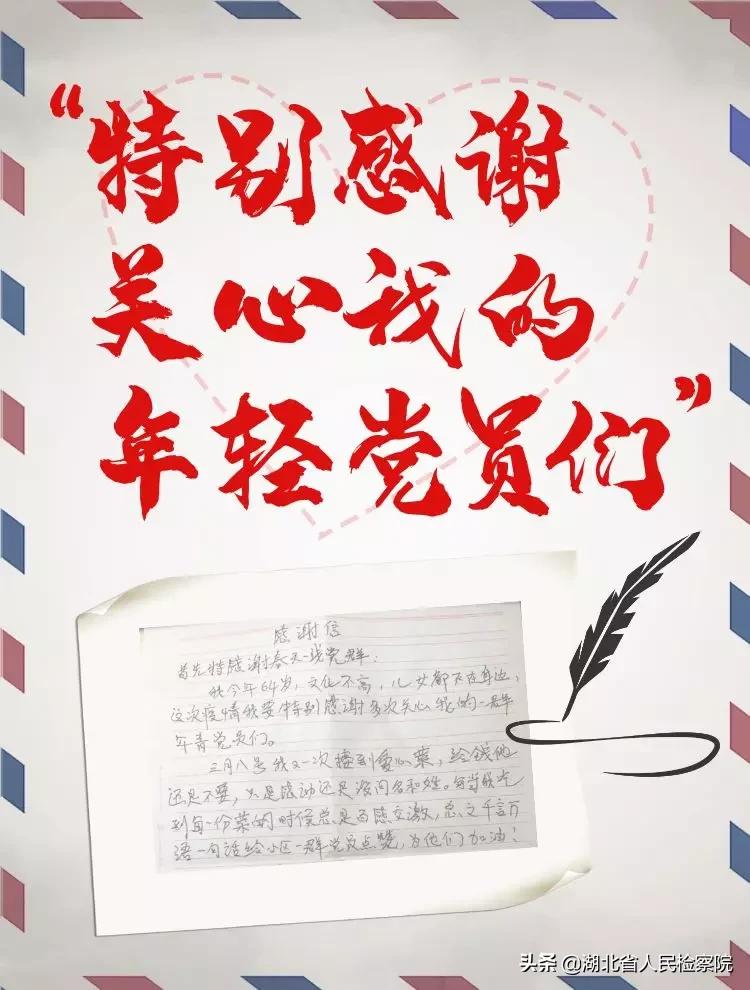 “特别感谢
关心我的
年轻党员们”
感谢信
首先特感谢春天一线党群:
我今年64岁,文化不高,儿女都不在身边,
这次疫情我要特别感谢多次关心我的一群年
年青党员们。
三月八号我又一次接到爱心菜,给钱他
还是不要,只是感动还是没问名和姓。每当我吃
到每一份菜的时候总是百感交激,总之千言万
语一句话给小区一群党员点赞,为他们加油!
头条 @湖北省人民检察院